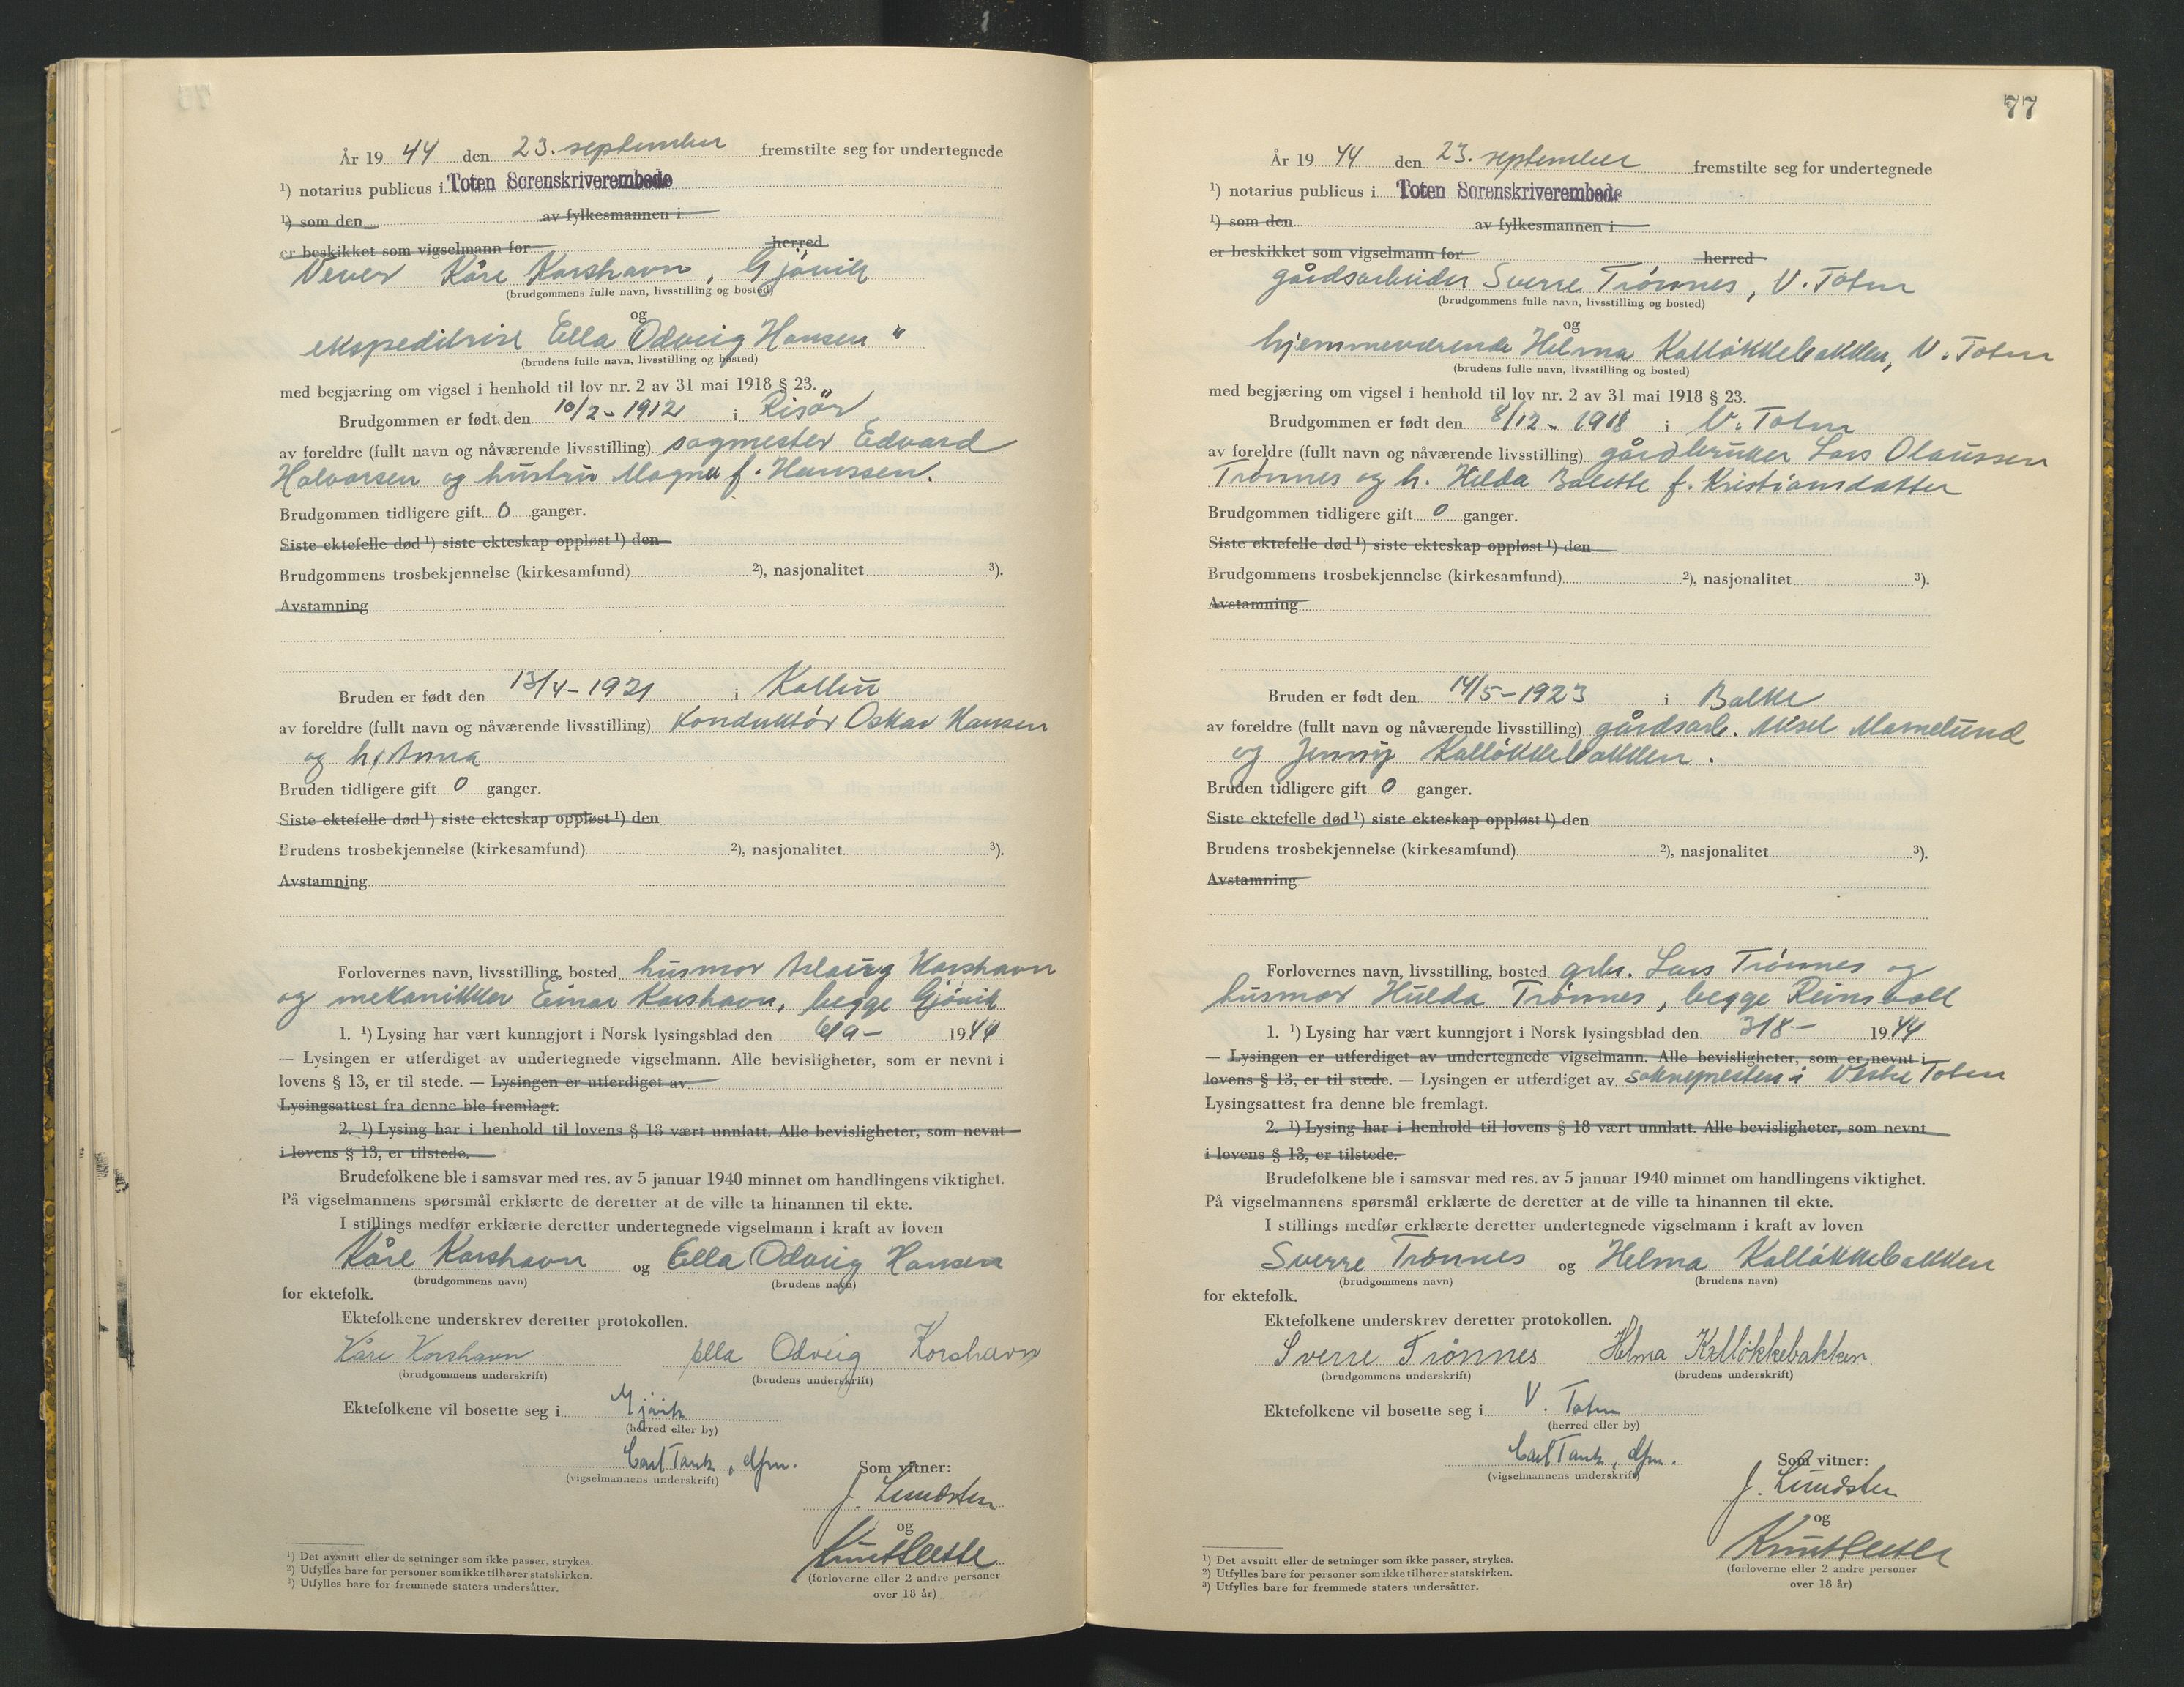 År 19 44 den 23. september fremstilte seg for undertegnede
¹) notarius publicus i Toten Sorenskriverembede
¹) som den av fylkesmannen i
er beskikket som vigselmann for herred
Vever Kåre Korshavn, Gjøvik
(brudgommens fulle navn, livsstilling og bosted)
og
ekspeditrise Ella Odveig Hansen "
(brudens fulle navn, livsstilling og bosted)
med begjæring om vigsel i henhold til lov nr. 2 av 31 mai 1918 § 23.
Brudgommen er født den 10/2 - 1912 i Risör
av foreldre (fullt navn og nåværende livsstilling) sagmester Edvard
Halvorsen og hustru Magna f. Hanssen.
Brudgommen tidligere gift 0 ganger.
Siste ektefelle død ¹) siste ekteskap oppløst ¹) den
Brudgommens trosbekjennelse (kirkesamfund) ²), nasjonalitet ³).
Avstamning
Bruden er født den 13/4 - 1921 i Kolbu
av foreldre (fullt navn og nåværende livsstilling) konduktør Oskar Hansen
og h, Anna
Bruden tidligere gift 0 ganger.
Siste ektefelle død ¹) siste ekteskap oppløst ¹) den
Brudens trosbekjennelse (kirkesamfund) ²), nasjonalitet ³).
Avstamning
Forlovernes navn, livsstilling, bosted husmor Aslaug Korshavn
og mekanikker Einar Korshavn, begge Gjøvik
1. ¹) Lysing har vært kunngjort i Norsk lysingsblad den 6/9 - 1944
— Lysingen er utferdiget av undertegnede vigselmann. Alle bevisligheter, som er nevnt i
lovens § 13, er til stede. — Lysingen er utferdiget av
Lysingsattest fra denne ble fremlagt.
2. ¹) Lysing har i henhold til lovens § 18 vært unnlatt. Alle bevisligheter, som nevnt
i lovens § 13, er tilstede.
Brudefolkene ble i samsvar med res. av 5 januar 1940 minnet om handlingens viktighet.
På vigselmannens spørsmål erklærte de deretter at de ville ta hinannen til ekte.
I stillings medfør erklærte deretter undertegnede vigselmann i kraft av loven
Kåre Korshavn og Ella Odveig Hansen
(brudgommens navn) (brudens navn)
for ektefolk.
Ektefolkene underskrev deretter protokollen.
Kåre Korshavn Ella Odveig Korshavn
(brudgommens underskrift) (brudens underskrift)
Ektefolkene vil bosette seg i Gjøvik
(herred eller by)
Carl Tank, dfm.
(vigselmannens underskrift)
Som vitner:
J. Lundsten
og
(forloverne eller 2 andre personer
over 18 år)
¹) Det avsnitt eller de setninger som ikke passer, strykes.
²) Utfylles bare for personer som ikke tilhører statskirken.
³) Utfylles bare for fremmede staters undersåtter.
77
År 19 44 den 23. september fremstilte seg for undertegnede
¹) notarius publicus i Toten Sorenskriverembede
¹) som den av fylkesmannen i
er beskikket som vigselmann for herred
gårdsarbeider Sverre Trønnes, V. Toten
(brudgommens fulle navn, livsstilling og bosted)
og
hjemmeværende Helma Kalløkkebakken, V. Toten
(brudens fulle navn, livsstilling og bosted)
med begjæring om vigsel i henhold til lov nr. 2 av 31 mai 1918 § 23.
Brudgommen er født den 8/12 - 1918 i V. Toten
av foreldre (fullt navn og nåværende livsstilling) gårdbruker Lars Olaussen
Trønnes og h. Hilda Bolette f. Kristiansdatter
Brudgommen tidligere gift 0 ganger.
Siste ektefelle død ¹) siste ekteskap oppløst ¹) den
Brudgommens trosbekjennelse (kirkesamfund) ²), nasjonalitet ³).
Avstamning
Bruden er født den 14/5 - 1923 i Balke
av foreldre (fullt navn og nåværende livsstilling) gårdsarb. Aksel Mamelund
og Jenny Kalløkkebakken.
Bruden tidligere gift 0 ganger.
Siste ektefelle død ¹) siste ekteskap oppløst ¹) den
Brudens trosbekjennelse (kirkesamfund) ²), nasjonalitet ³).
Avstamning
Forlovernes navn, livsstilling, bosted grbr. Lars Trønnes og
husmor Hulda Trønnes, begge Reinsvoll
1. ¹) Lysing har vært kunngjort i Norsk lysingsblad den 3/8 - 1944
— Lysingen er utferdiget av undertegnede vigselmann. Alle bevisligheter, som er nevnt i
lovens § 13, er til stede. — Lysingen er utferdiget av soknepresten i Vestre Toten
Lysingsattest fra denne ble fremlagt.
2. ¹) Lysing har i henhold til lovens § 18 vært unnlatt. Alle bevisligheter, som nevnt
i lovens § 13, er tilstede.
Brudefolkene ble i samsvar med res. av 5 januar 1940 minnet om handlingens viktighet.
På vigselmannens spørsmål erklærte de deretter at de ville ta hinannen til ekte.
I stillings medfør erklærte deretter undertegnede vigselmann i kraft av loven
Sverre Trønnes og Helma Kalløkkebakken
(brudgommens navn) (brudens navn)
for ektefolk.
Ektefolkene underskrev deretter protokollen.
Sverre Trønnes Helma Kalløkkebakken
(brudgommens underskrift) (brudens underskrift)
Ektefolkene vil bosette seg i V. Toten
(herred eller by)
Carl Tank, dfm.
(vigselmannens underskrift)
Som vitner:
J. Lundsten
og
(forloverne eller 2 andre personer
over 18 år)
¹) Det avsnitt eller de setninger som ikke passer, strykes.
²) Utfylles bare for personer som ikke tilhører statskirken.
³) Utfylles bare for fremmede staters undersåtter.